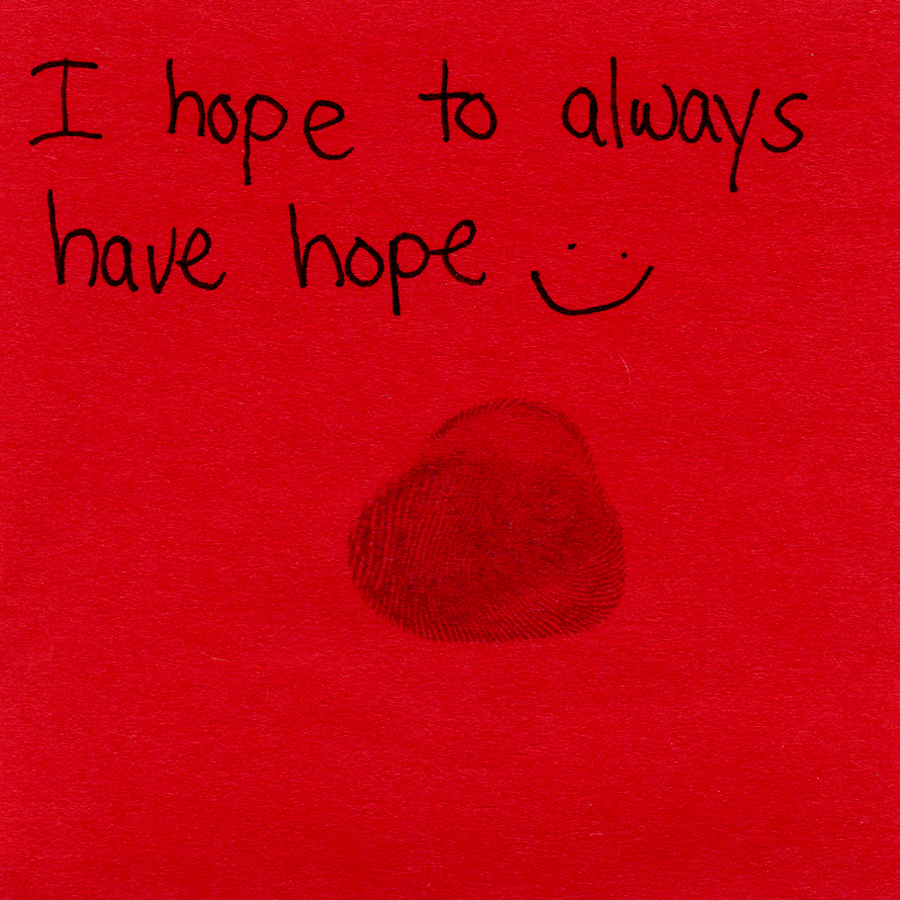 I hope to always
have hope